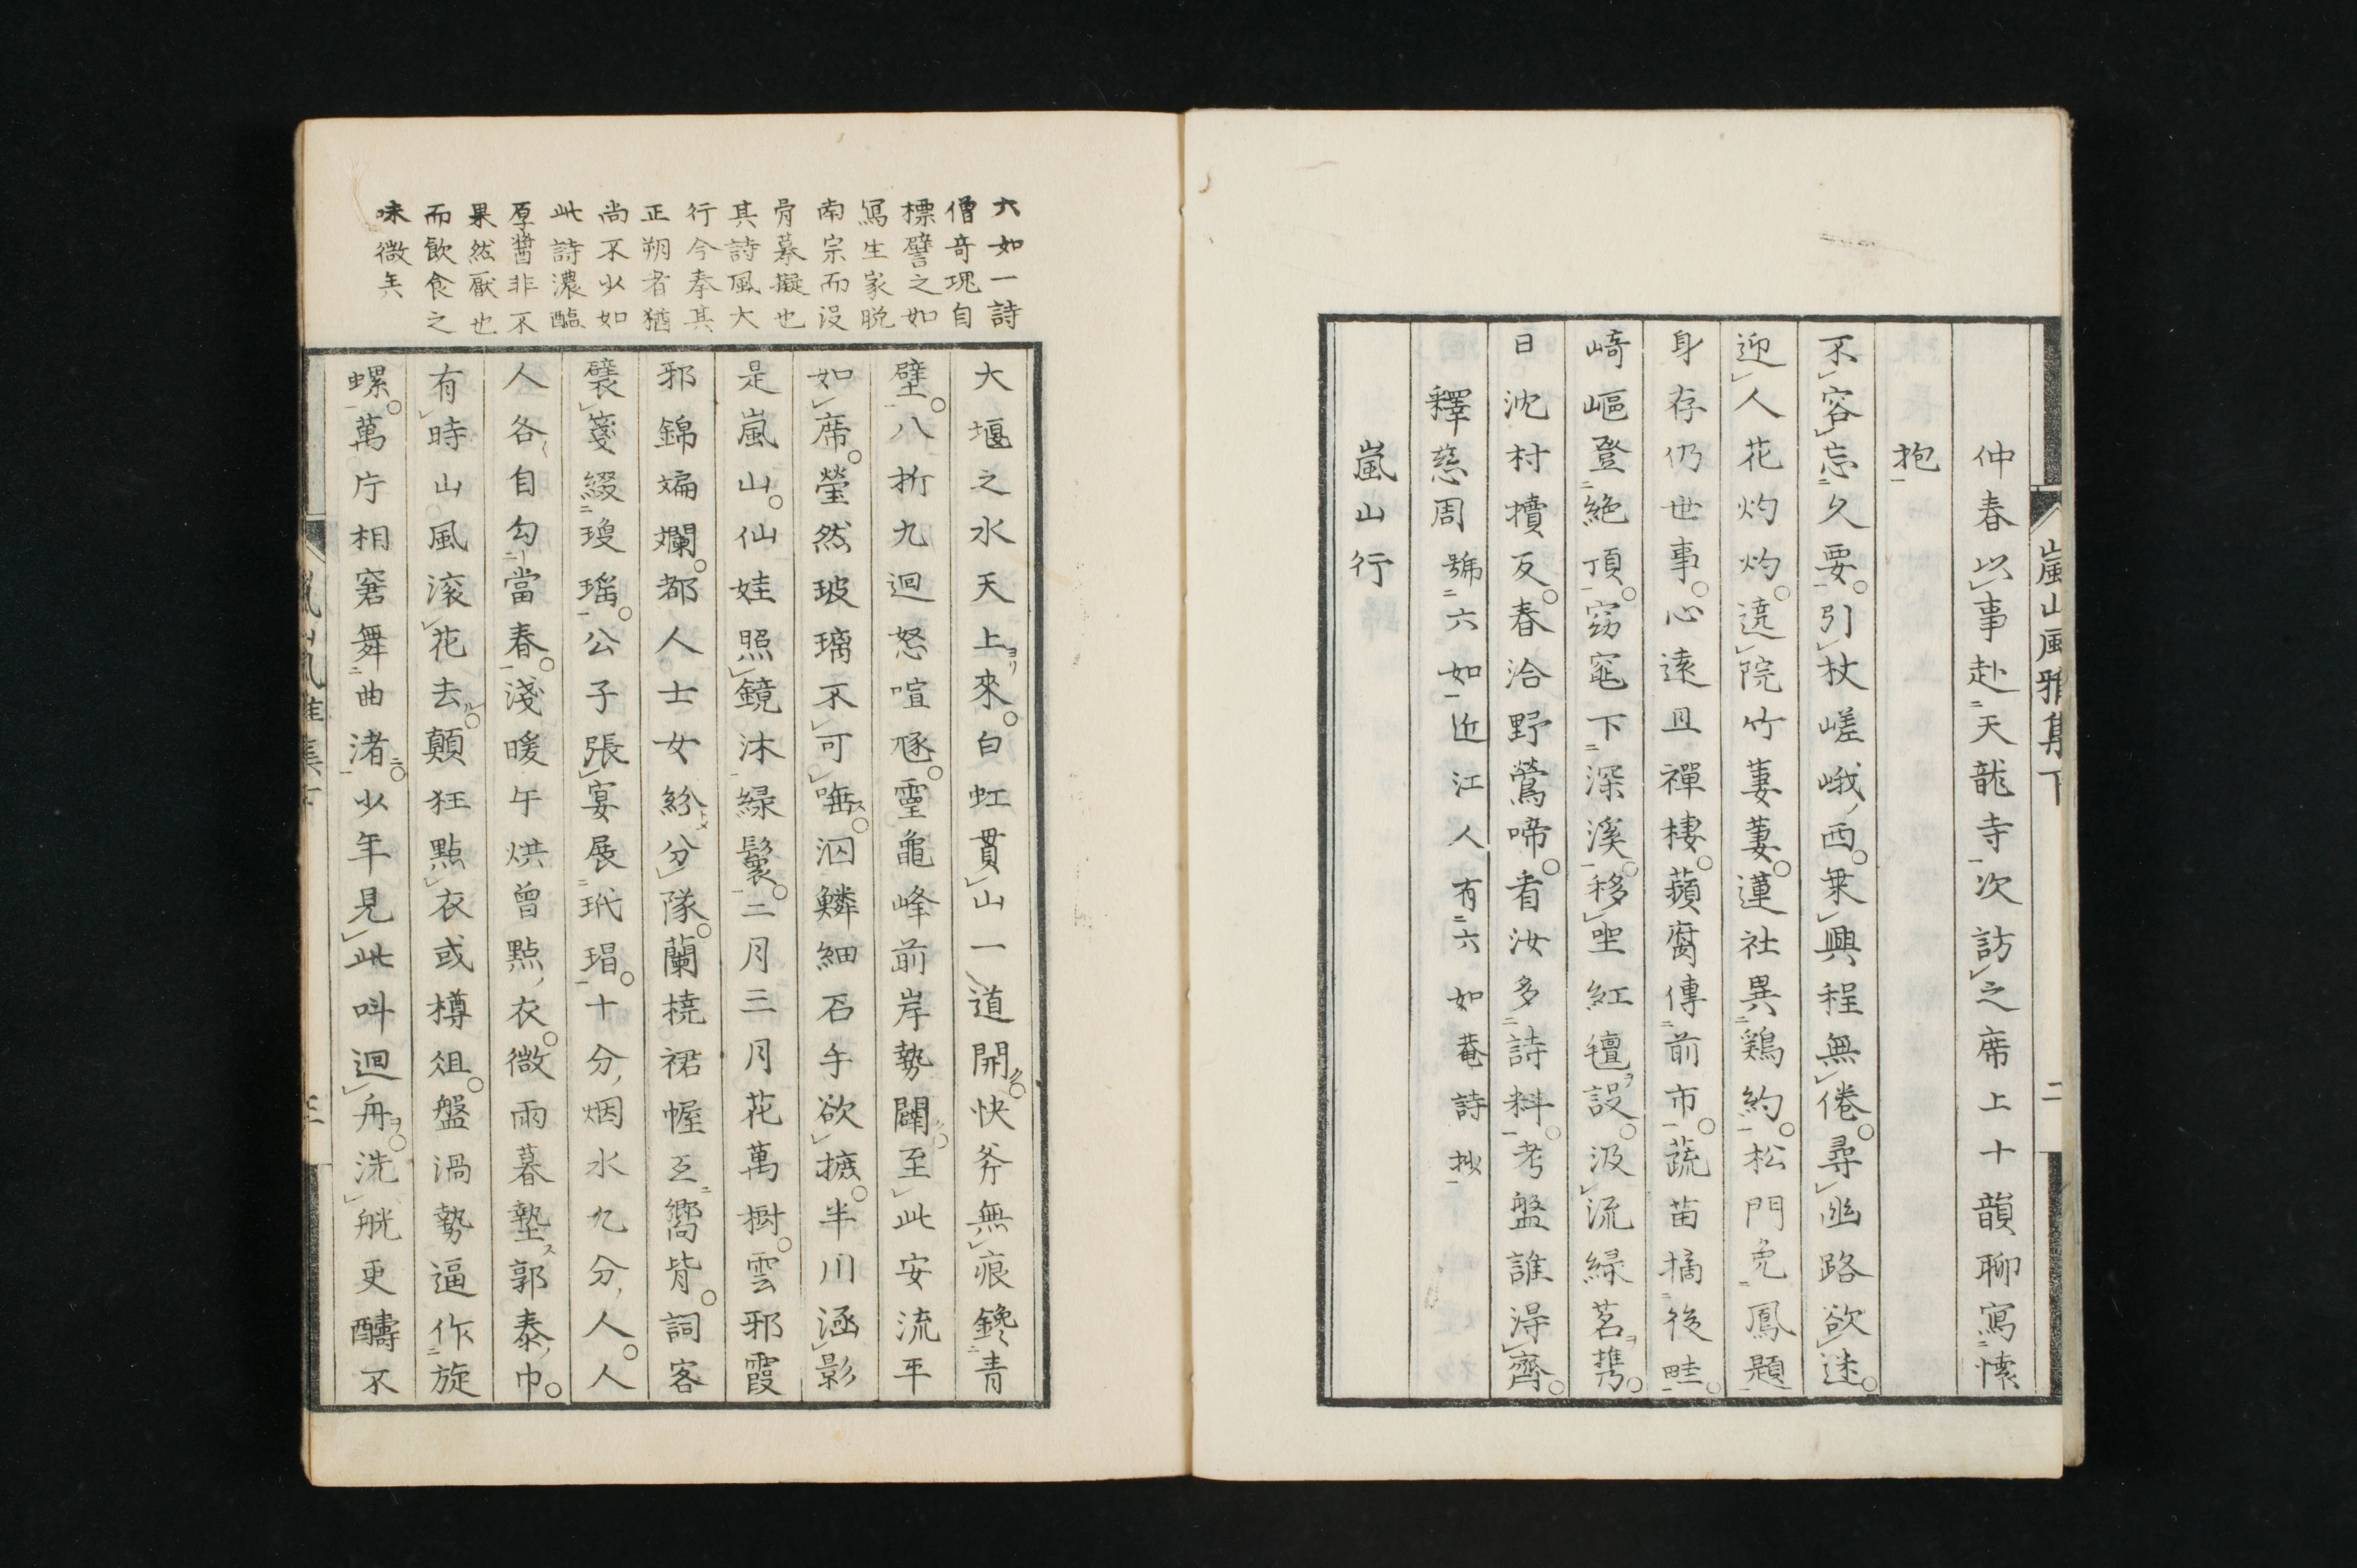 嵐山風雅集下
二
仲春以事赴天龍寺次訪之席上十韻聊寫懐
抱
不容忘久要引杖嵯峨西乗興程無倦尋幽路欲迷
迎人花灼灼遶院竹萋萋蓮社異鶏約松門免鳳題
身存仍世事心遠且禪棲蘋腐傳前市蔬苗摘後畦
崎嶇登絶頂窈窕下深溪移坐紅氊設汲流緑茗攜
日沈村犢反春洽野鶯啼看汝多詩料考盤誰得齊
釋慈周號六如近江人有六如菴詩抄
嵐山行
六如一詩
僧奇瑰自
標譬之如
寫生家脱
南宗而没
骨摹擬也
其詩風大
行今奉其
正朔者猶
尚不少如
此詩濃醞
厚醬非不
果然厭也
而飲食之
味微矣
大堰之水天上來白虹貫山一道開快斧無痕鑱青
壁八折九迴怒喧豗靈龜峰前岸勢闢至此安流平
如席瑩然玻璃不可唾泅鱗細石手欲摭半川涵影
是嵐山仙娃照鏡沐緑鬟二月三月花萬樹雲邪霞
邪錦斒斕都人士女紛分隊蘭橈裙幄互嚮背詞客
襞箋綴瓊瑶公子張宴展玳瑁十分烟水九分人人
人各自勾當春淺暖午烘曾點衣微雨暮墊郭泰巾
有時山風滚花去顛狂點衣或樽俎盤渦勢逼作旋
螺萬片相窘舞曲渚少年見此叫迴舟洗觥更醻不